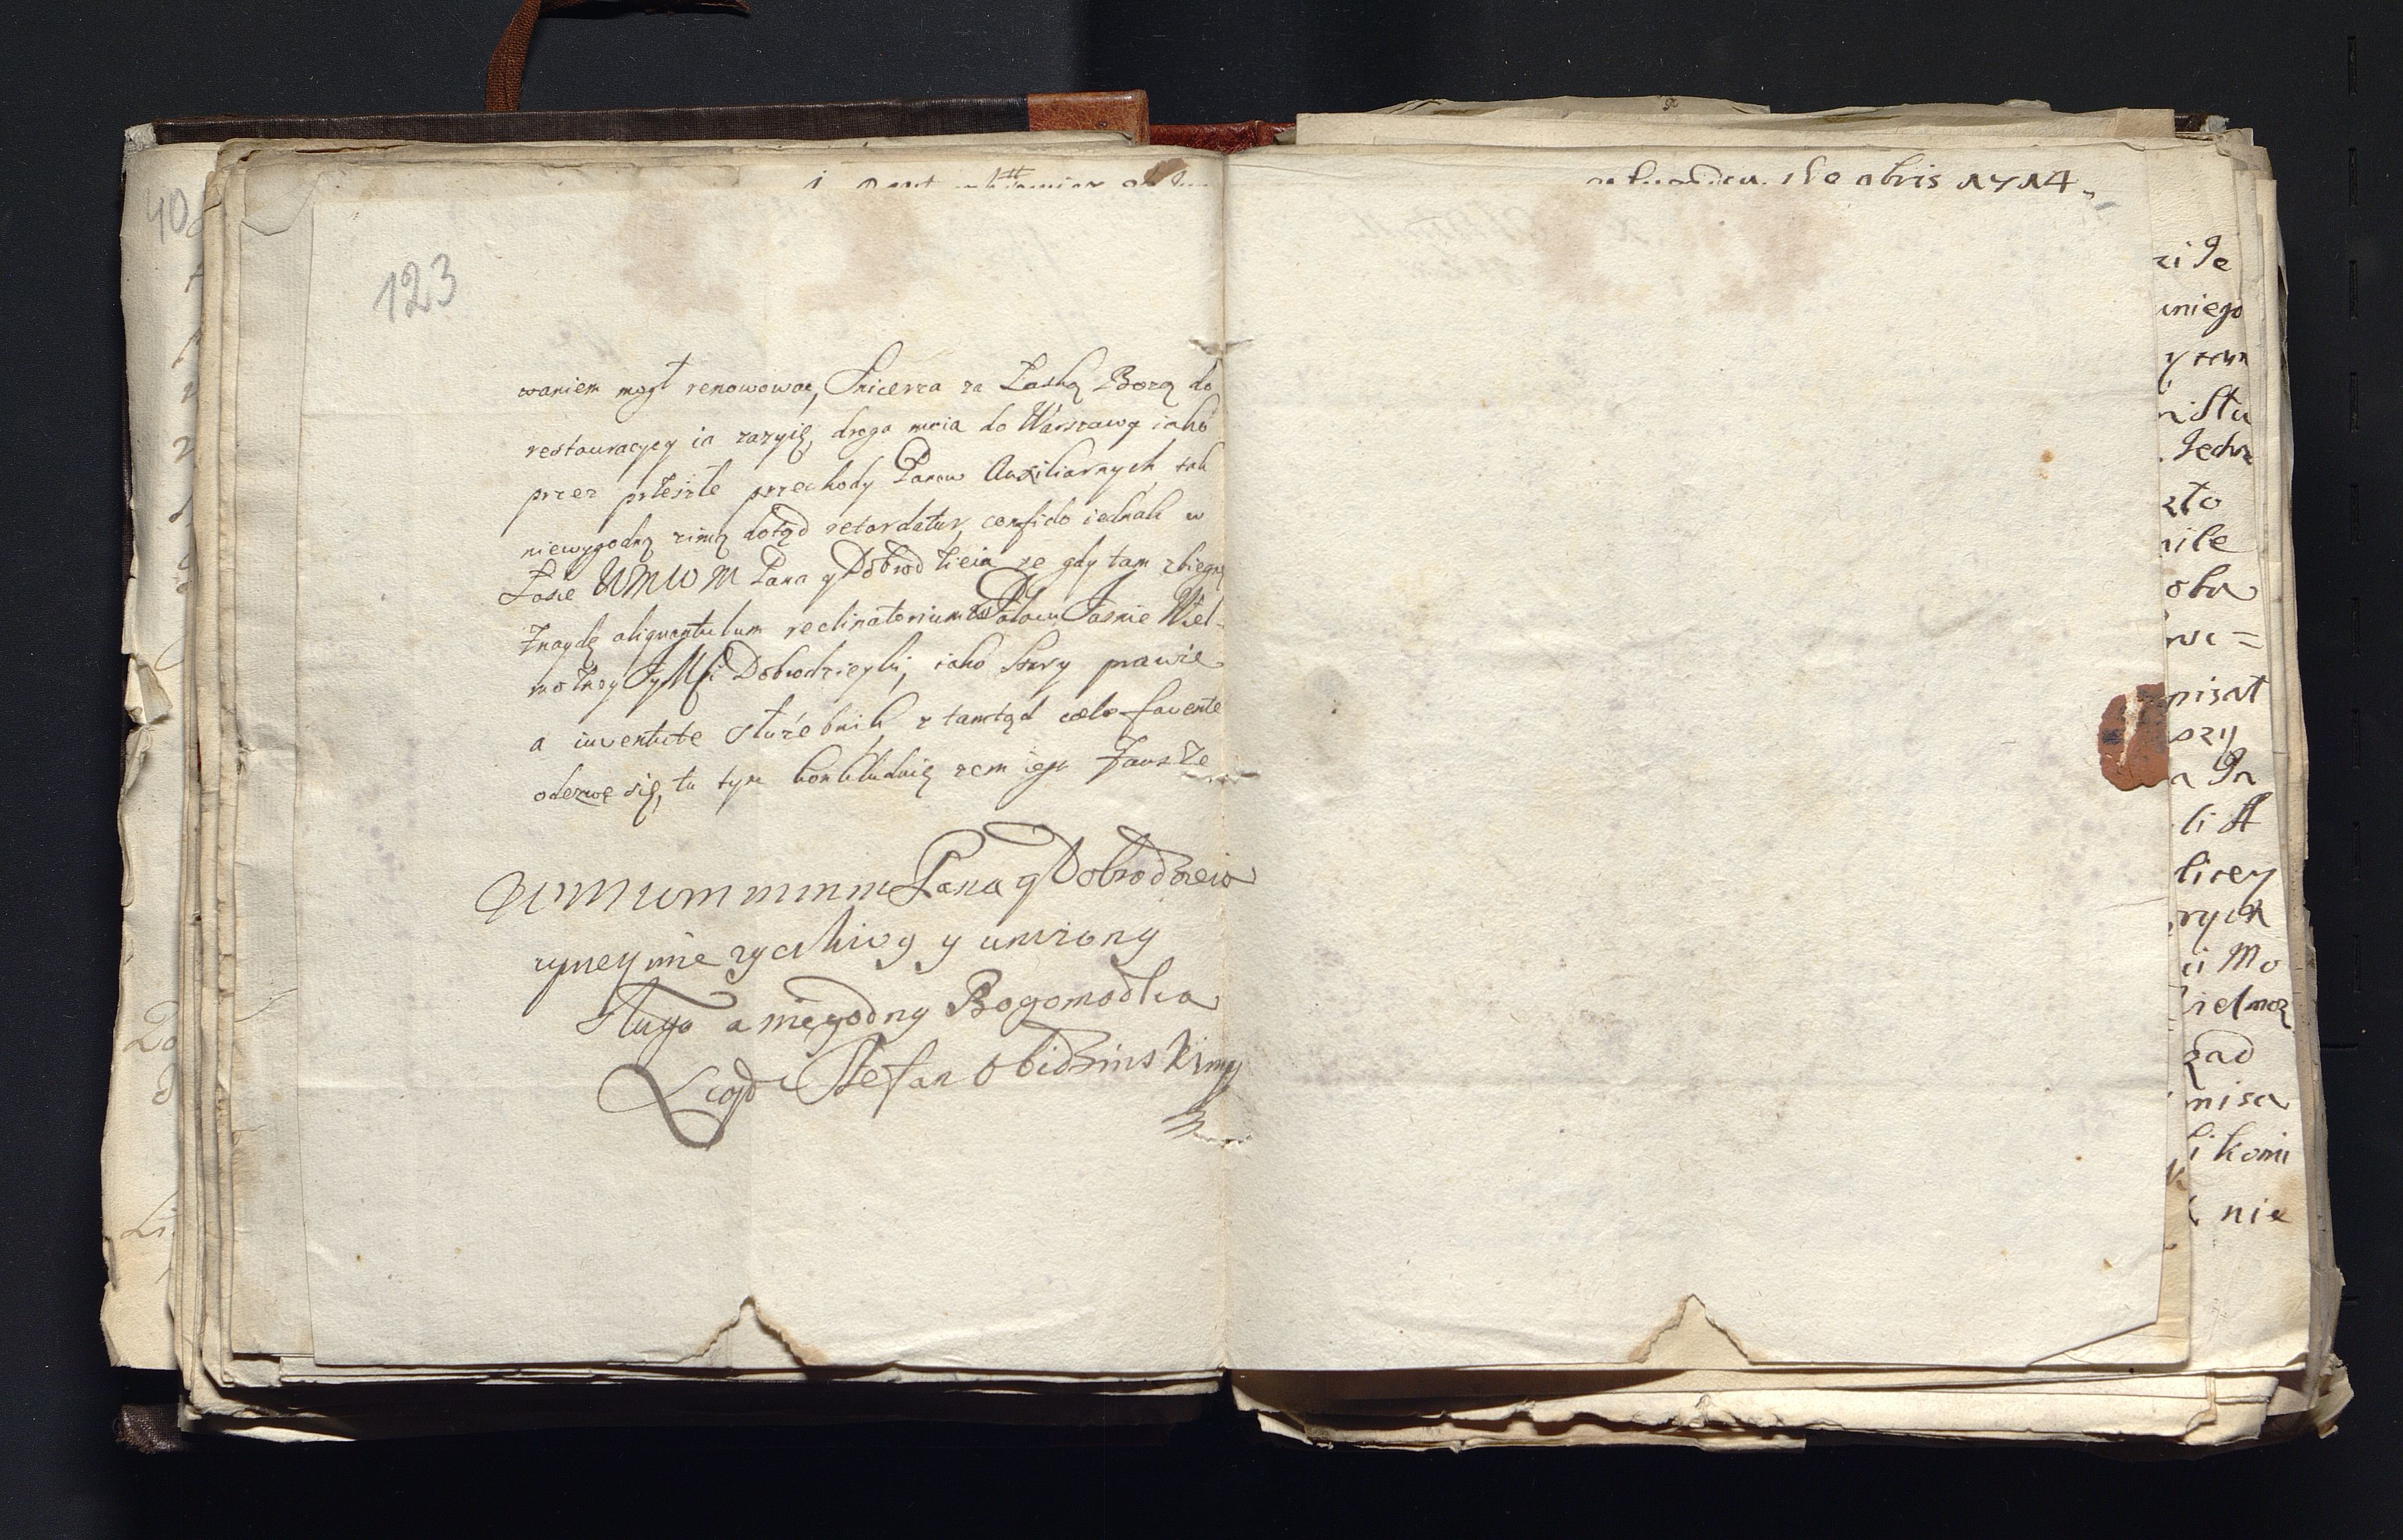 123
waniem mogł renowowac, Snicerza za Łaską Bozą do
restauracyey ia zazyię, droga moia do Warszawy iako
przez przeszłe przechody Panow Auxiliarnych, tak
niewygodną zimą dotąd retardatur, confido iednak w
Łasce WMWM Pana y Dobrodzieia ze gdy tam zbiegnę
Znaydę aliquantulum reclinatorium w Pałacu Jasnie Wiel-
mozney JeyMsci Dobrodzieyki, iako stary prawie
a iuventute słuzebnik, z tamtąd coelo favente
odezwę się, tu tym konkluduię zem iest Zawsze
WMWMMMM Pana y Dobrodzieia
uprzeymie zyczliwy y unizony
Sługa a niegodny Bogomodlca
Stefan Obidzinski mp
1714
zi Je
uniego
y tym
Jedna
zło
nile
oba
pisał
szy
li
licey
rych
ci Mo
ielmoz
zad
nisa
i komi
nie